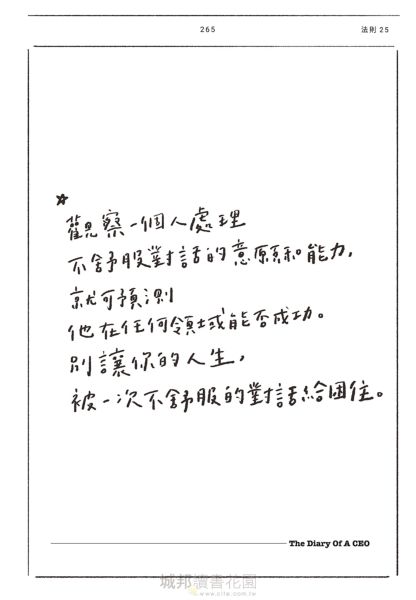 265 法則 25
觀察一個人處理
不舒服對話的意願和能力,
就可預測
他在任何領域能否成功。
別讓你的人生,
被一次不舒服的對話給困住。
The Diary Of A CEO
城邦讀書花園
www.cite.com.tw